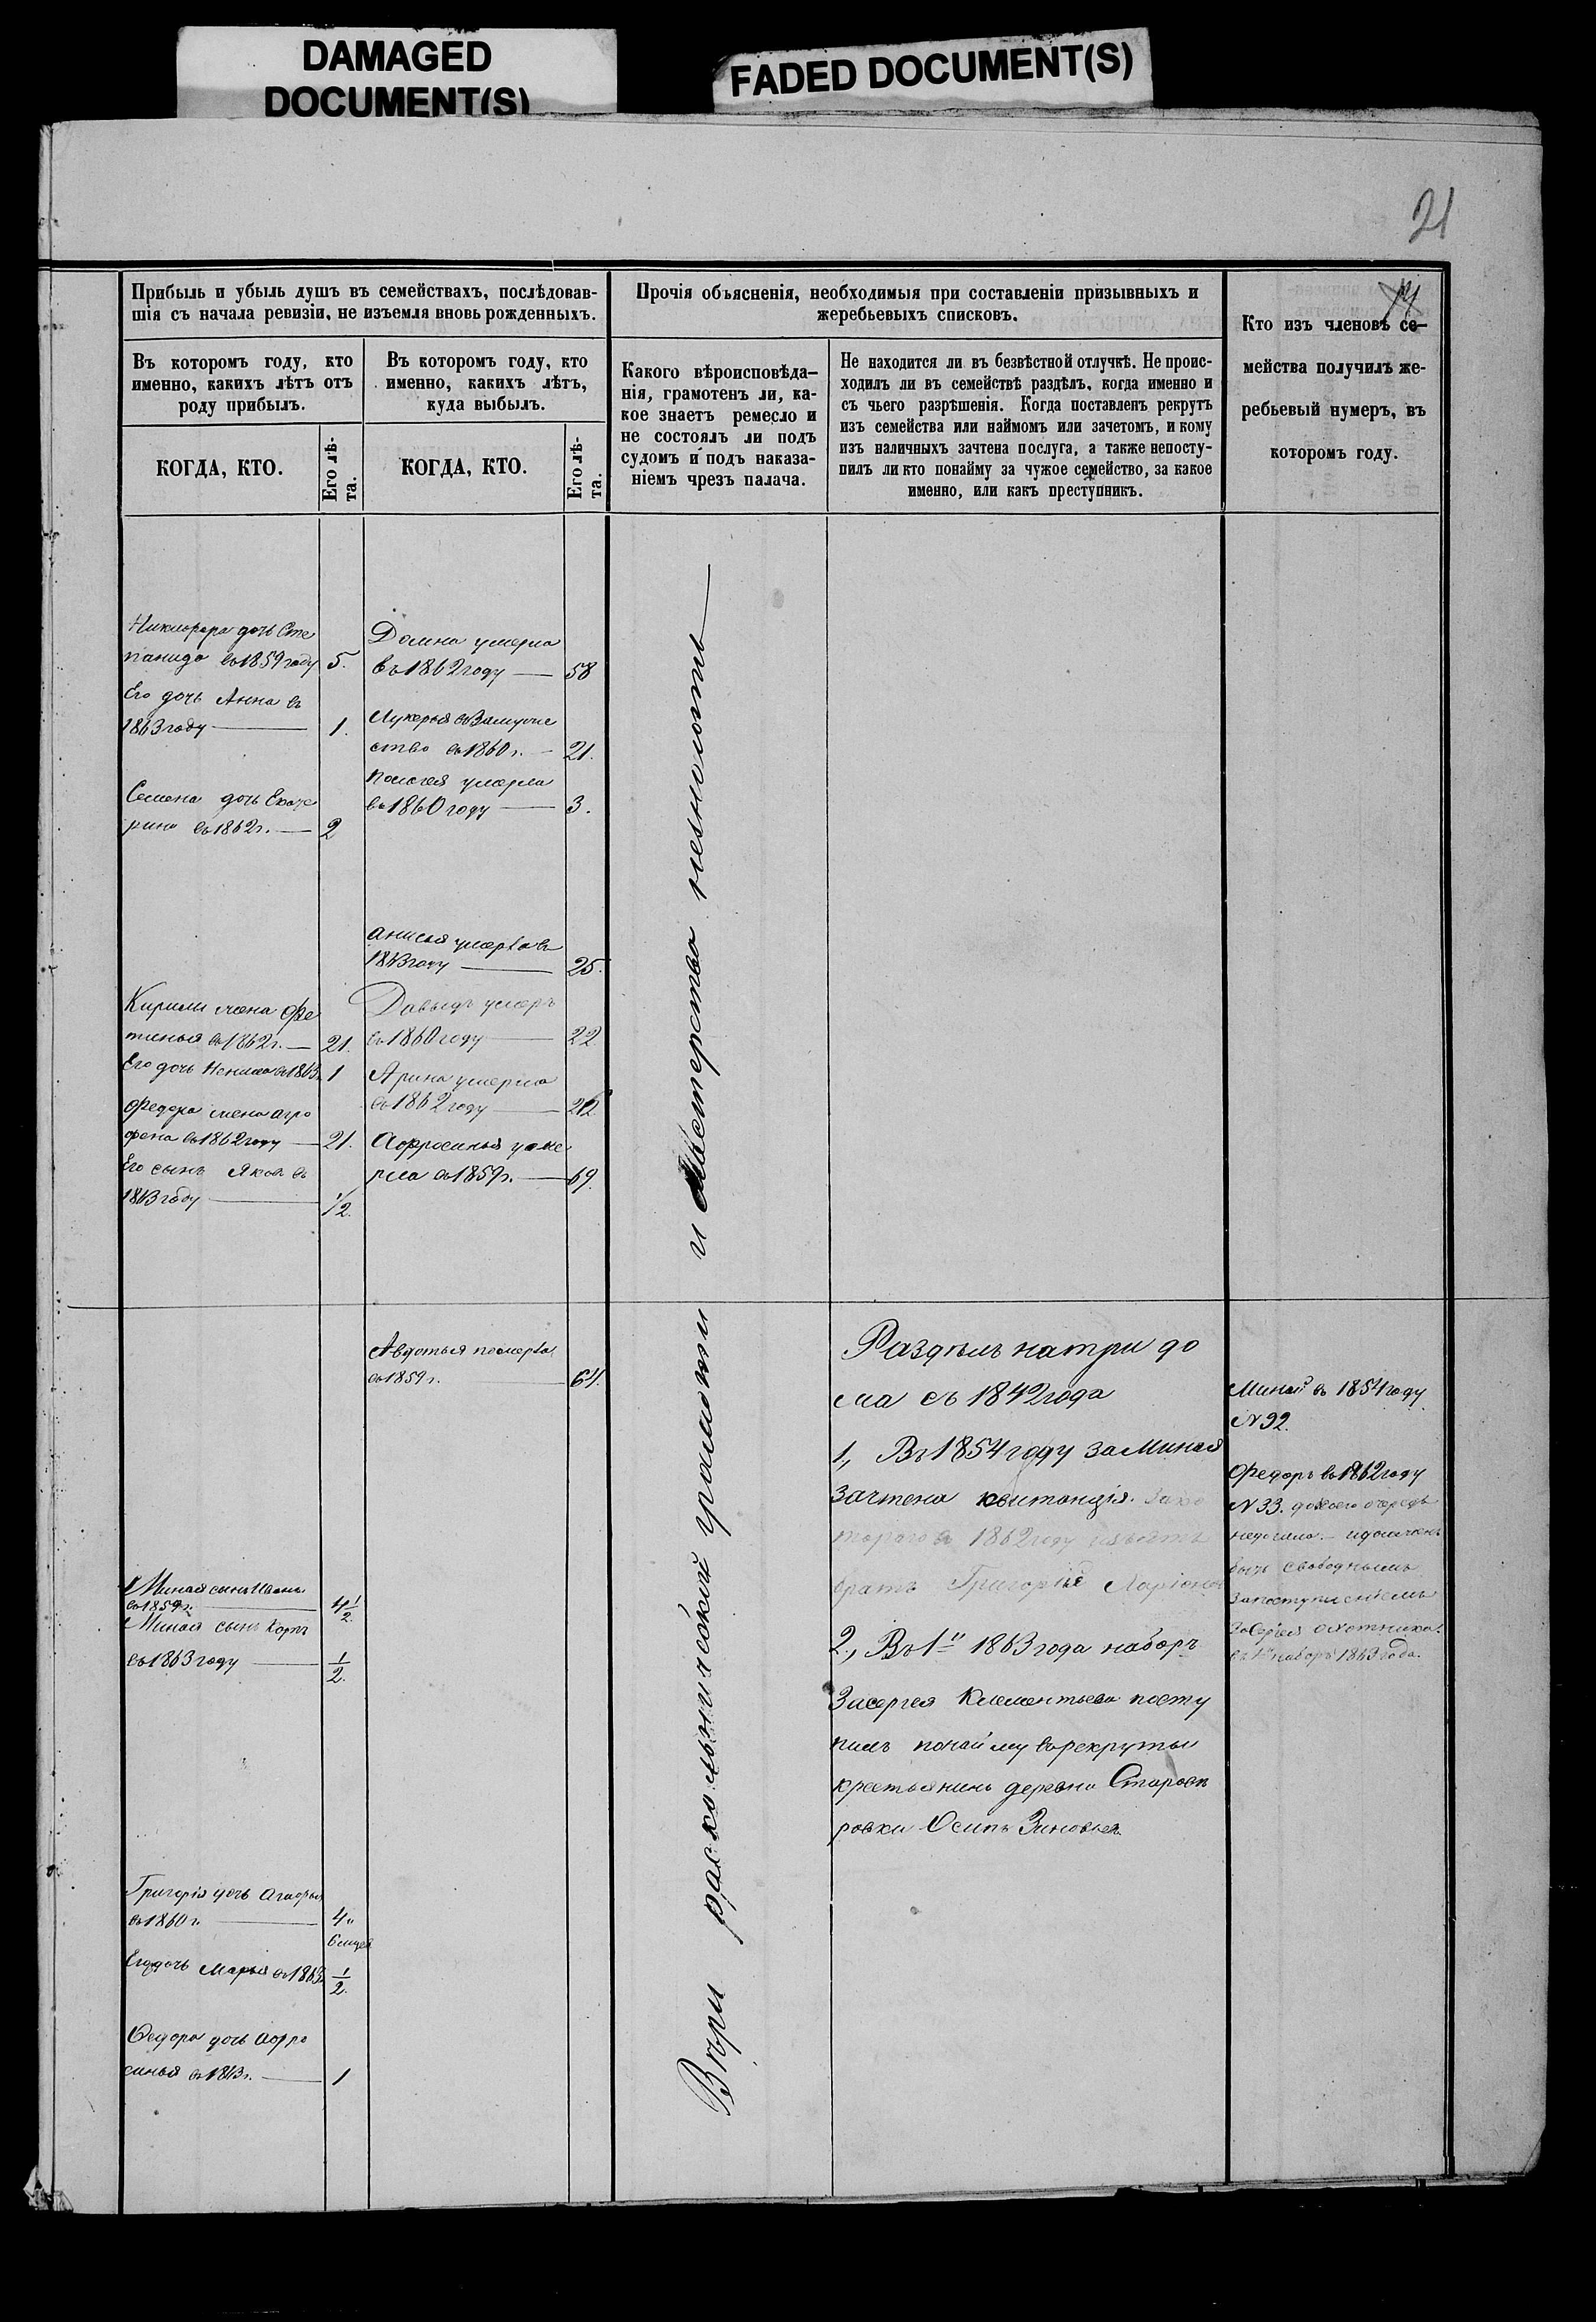 DAMAGED
DOCUMENT(S)
FADED DOCUMENT(S)
21
Прибыль и убыль душъ въ семействахъ, послѣдовав-
шія съ начала ревизіи, не изъемля вновь рожденныхъ.
Въ которомъ году, кто
именно, какихъ лѣтъ отъ
роду прибылъ.
КОГДА, КТО.
Его лѣ-
та.
Въ которомъ году, кто
именно, какихъ лѣтъ,
куда выбылъ.
КОГДА, КТО.
Его лѣ-
та.
Прочія объясненія, необходимыя при составленіи призывныхъ и
жеребьевыхъ списковъ.
Какого вѣроисповѣда-
нія, грамотенъ ли, ка-
кое знаетъ ремесло и
не состоялъ ли подъ
судомъ и подъ наказа-
ніемъ чрезъ палача.
Не находится ли въ безвѣстной отлучкѣ. Не проис-
ходилъ ли въ семействѣ раздѣлъ, когда именно и
съ чьего разрѣшенія. Когда поставленъ рекрутъ
изъ семейства или наймомъ или зачетомъ, и кому
изъ наличныхъ зачтена послуга, а также непосту-
пилъ ли кто понайму за чужое семейство, за какое
именно, или какъ преступникъ.
Кто изъ членовъ се-
мейства получилъ же-
ребьевый нумеръ, въ
которомъ году.
Никифора дочь Сте
панида въ 1859 году 5.
Его дочь Анна въ
1863 году — 1.
Семена дочь Екате
рина въ 1862 г. — 2
Кирили жена Фе
тинья въ 1862 г. — 21.
Его дочь въ 1863 1
Федора жена Агро
фена въ 1862 году — 21.
Его сынъ Яковъ въ
1863 году — 1/2.
Миная сынъ Иванъ
въ 1859 г. — 4 1/2
Миная сынъ Карпъ
въ 1863 году — 1/2.
Григорія дочь Агафья
въ 1860 г. — 4
Его дочь Марья въ 1863 1/2.
Федора дочь Афро
синья въ 1863 г. — 1
Домна умерла
въ 1862 году — 58
Лукерья въ Замуже
ство въ 1860 г. — 21.
Палагея умерла
въ 1860 году — 3.
Анисья умерла въ
1863 году — 25.
Давыдъ умеръ
въ 1860 году — 22
Арина умерла
въ 1862 году —
Афросинья уме
рла въ 1859 г. — 69.
Авдотья померла
въ 1859 г. — 64.
Вѣры раскольнической грамоти и Мастерства незнаютъ —
Раздѣлъ на три до
ма съ 1842 года
1., Въ 1854 году за Миная
зачтена квитанція. за ко
тораго въ 1862 году
братъ Григорій Ларіоновъ
2., Въ 1й 1863 года наборъ
За Сергея Клементьева посту
пилъ понайму в рекруты
крестьянинъ деревни
Осипъ Зиновьевъ
Минай въ 1854 году
N 92.
Федоръ въ 1862 году
N 33. до коего очередь
недошла —
быть свободнымъ
за поступленіемъ
за Сергея охотника
въ 1й наборъ 1863 года.